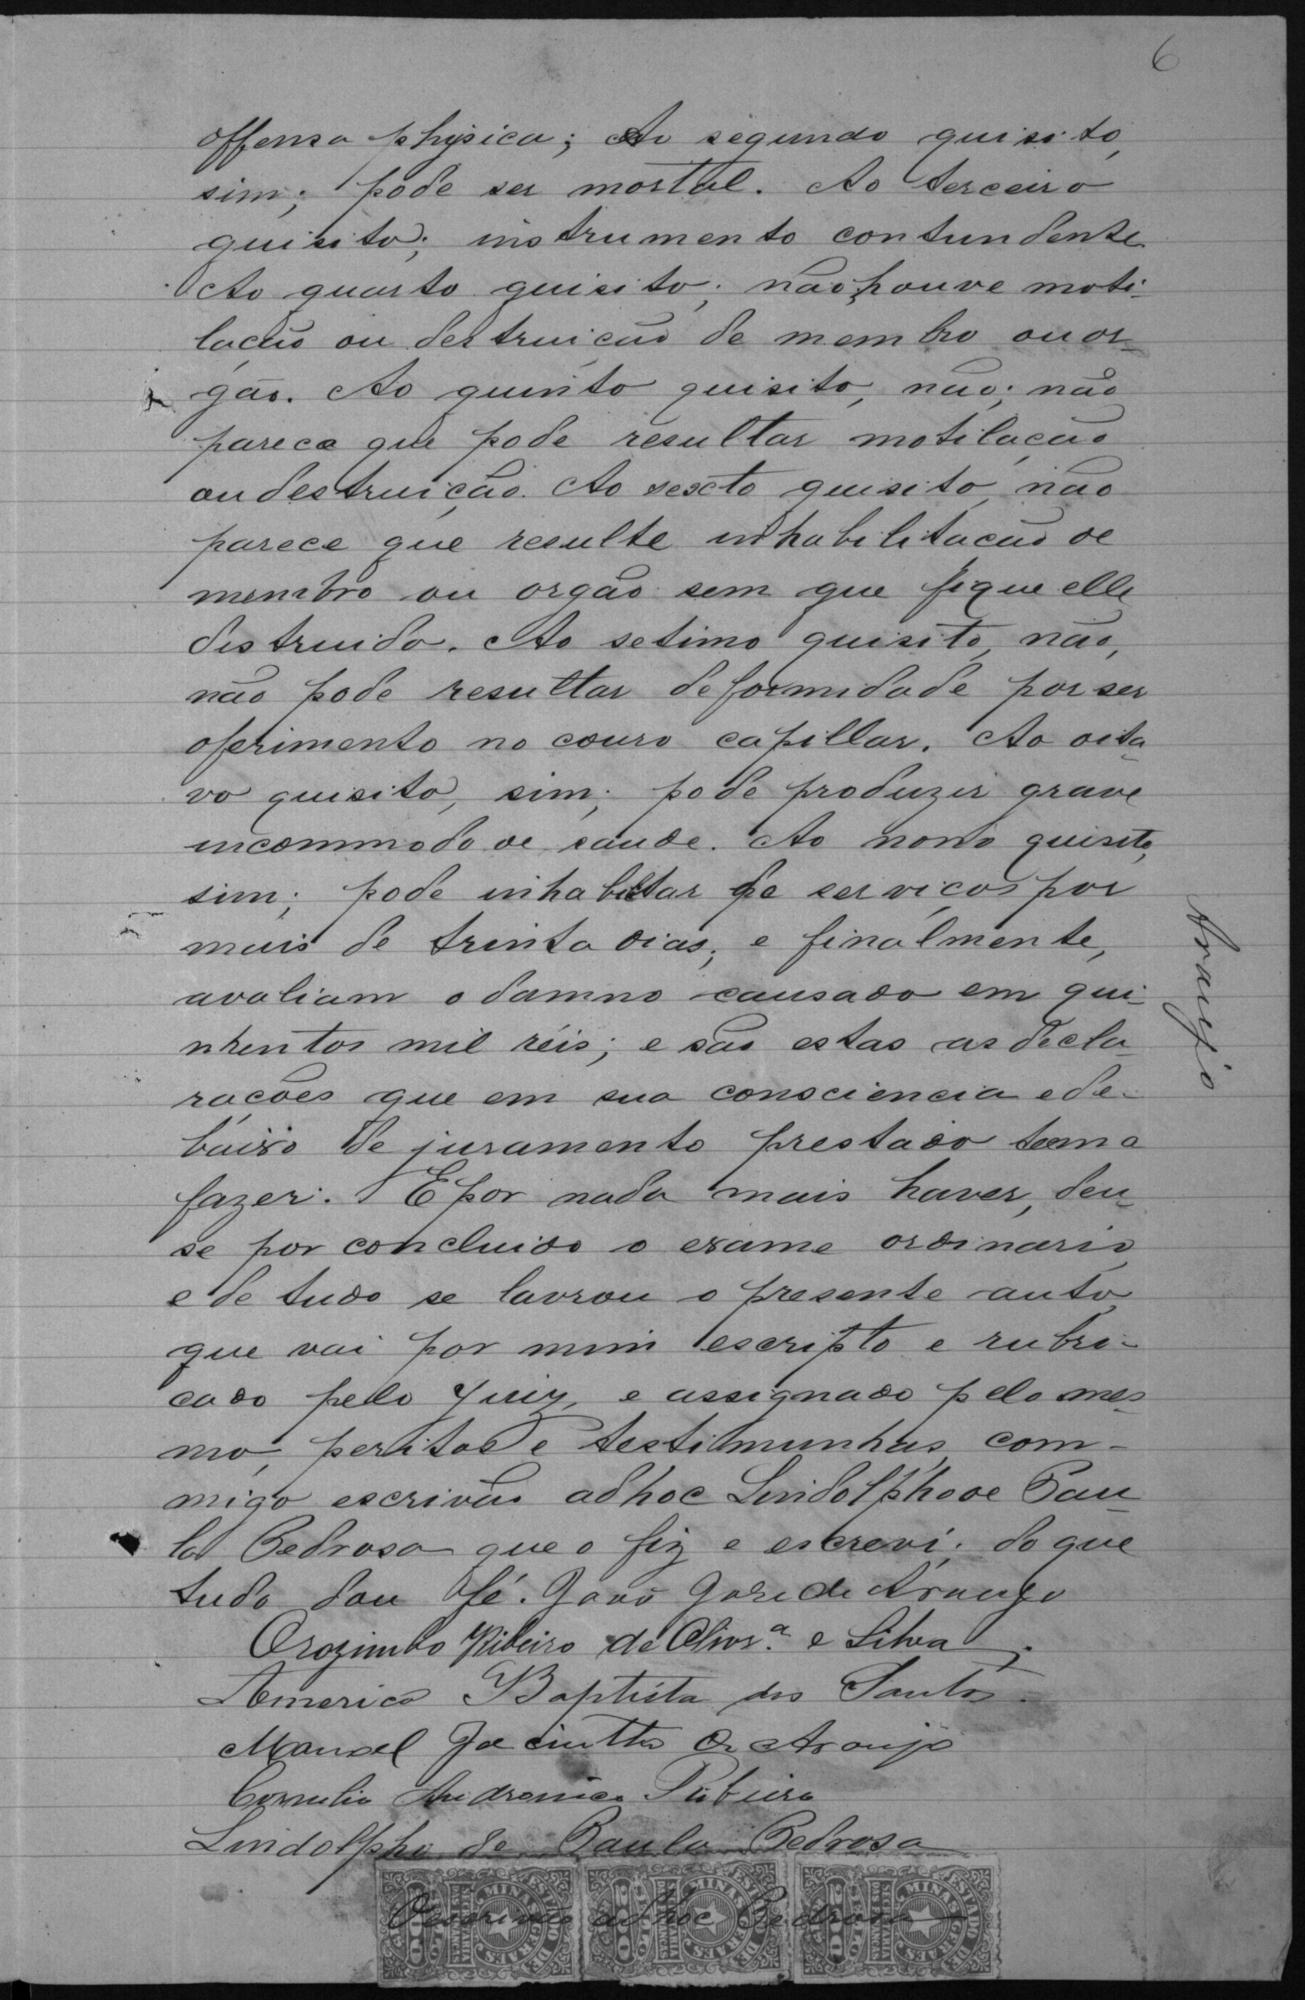 6
offensa physica; Ao segundo quisito,
sim; pode ser mortal. Ao terceiro
quisito; instrumento contundente
Ao quarto quisito; não houve moti-
lação ou destruição de membro ou or-
gão. Ao quinto quisito, não; não
parece que pode resultar motilação
ou destruição. Ao sexto quisito, não
parece que resulte inhabilitação de
membro ou orgão sem que fique elle
distruido. Ao setimo quisito, não,
não pode resultar deformidade por ser
oferimento no couro capillar. Ao oita-
vo quisito, sim; pode produzir grave
incommodo de saude. Ao nono quisito,
sim; pode inhabilitar de serviços por
mais de trinta dias; e finalmente,
avaliam o damno causado em qui-
nhentos mil réis; e são estas as decla-
rações que em sua consciencia e de-
baixo de juramento prestado tem a
fazer. E por nada mais haver, deu-
se por concluido o exame ordinario
e de tudo se lavrou o presente auto,
que vai por mim escripto e rubri-
cado pelo Juiz, e assignado pelo mes-
mo, peritos e testimunhas, com-
migo escrivão adhoc Lindolpho de Pau-
la Pedrosa que o fiz e escreví; do que
tudo dou fé. João José de Araujo
Orozimbo Ribeiro de Olivrª e Silva
Americo Baptista dos Santos
Manoel Jacintho de Araujo
Cornelio Andronico Ribeiro
Lindolpho de Paula Pedrosa
O escrivão ad hoc Pedrosa
Araujo
ESTADO DE MINAS GERAES
ESTADO DE MINAS GERAES
ESTADO DE MINAS GERAES